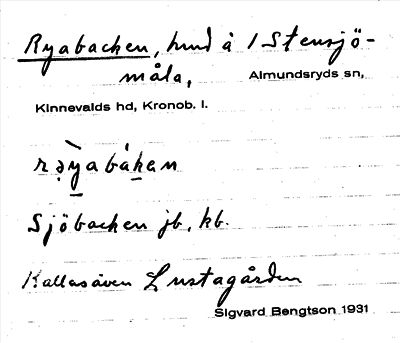 Ryabacken, hmd å 1 Stensjö-
måla, Almundsryds sn,
Kinnevalds hd, Kronob. l.
rə̀yabákan
Sjöbacken jb, kb.
Kallas även Lustagården
Sigvard Bengtson 1931